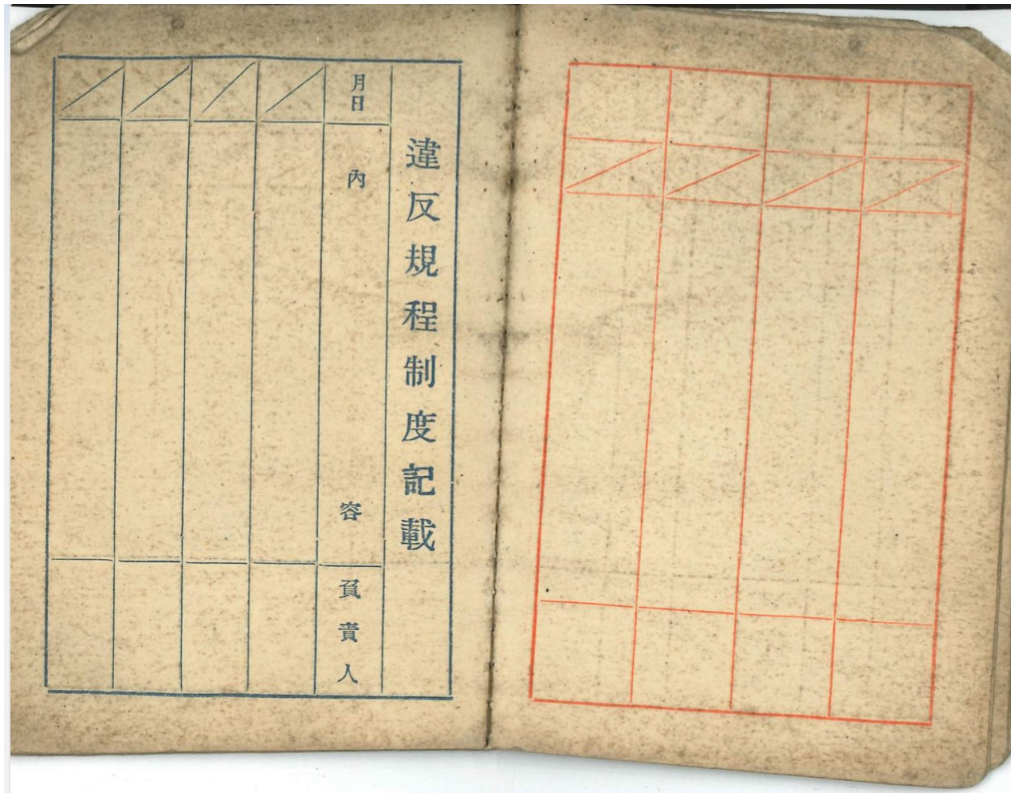 違反規程制度記載
月日
內容
負責人